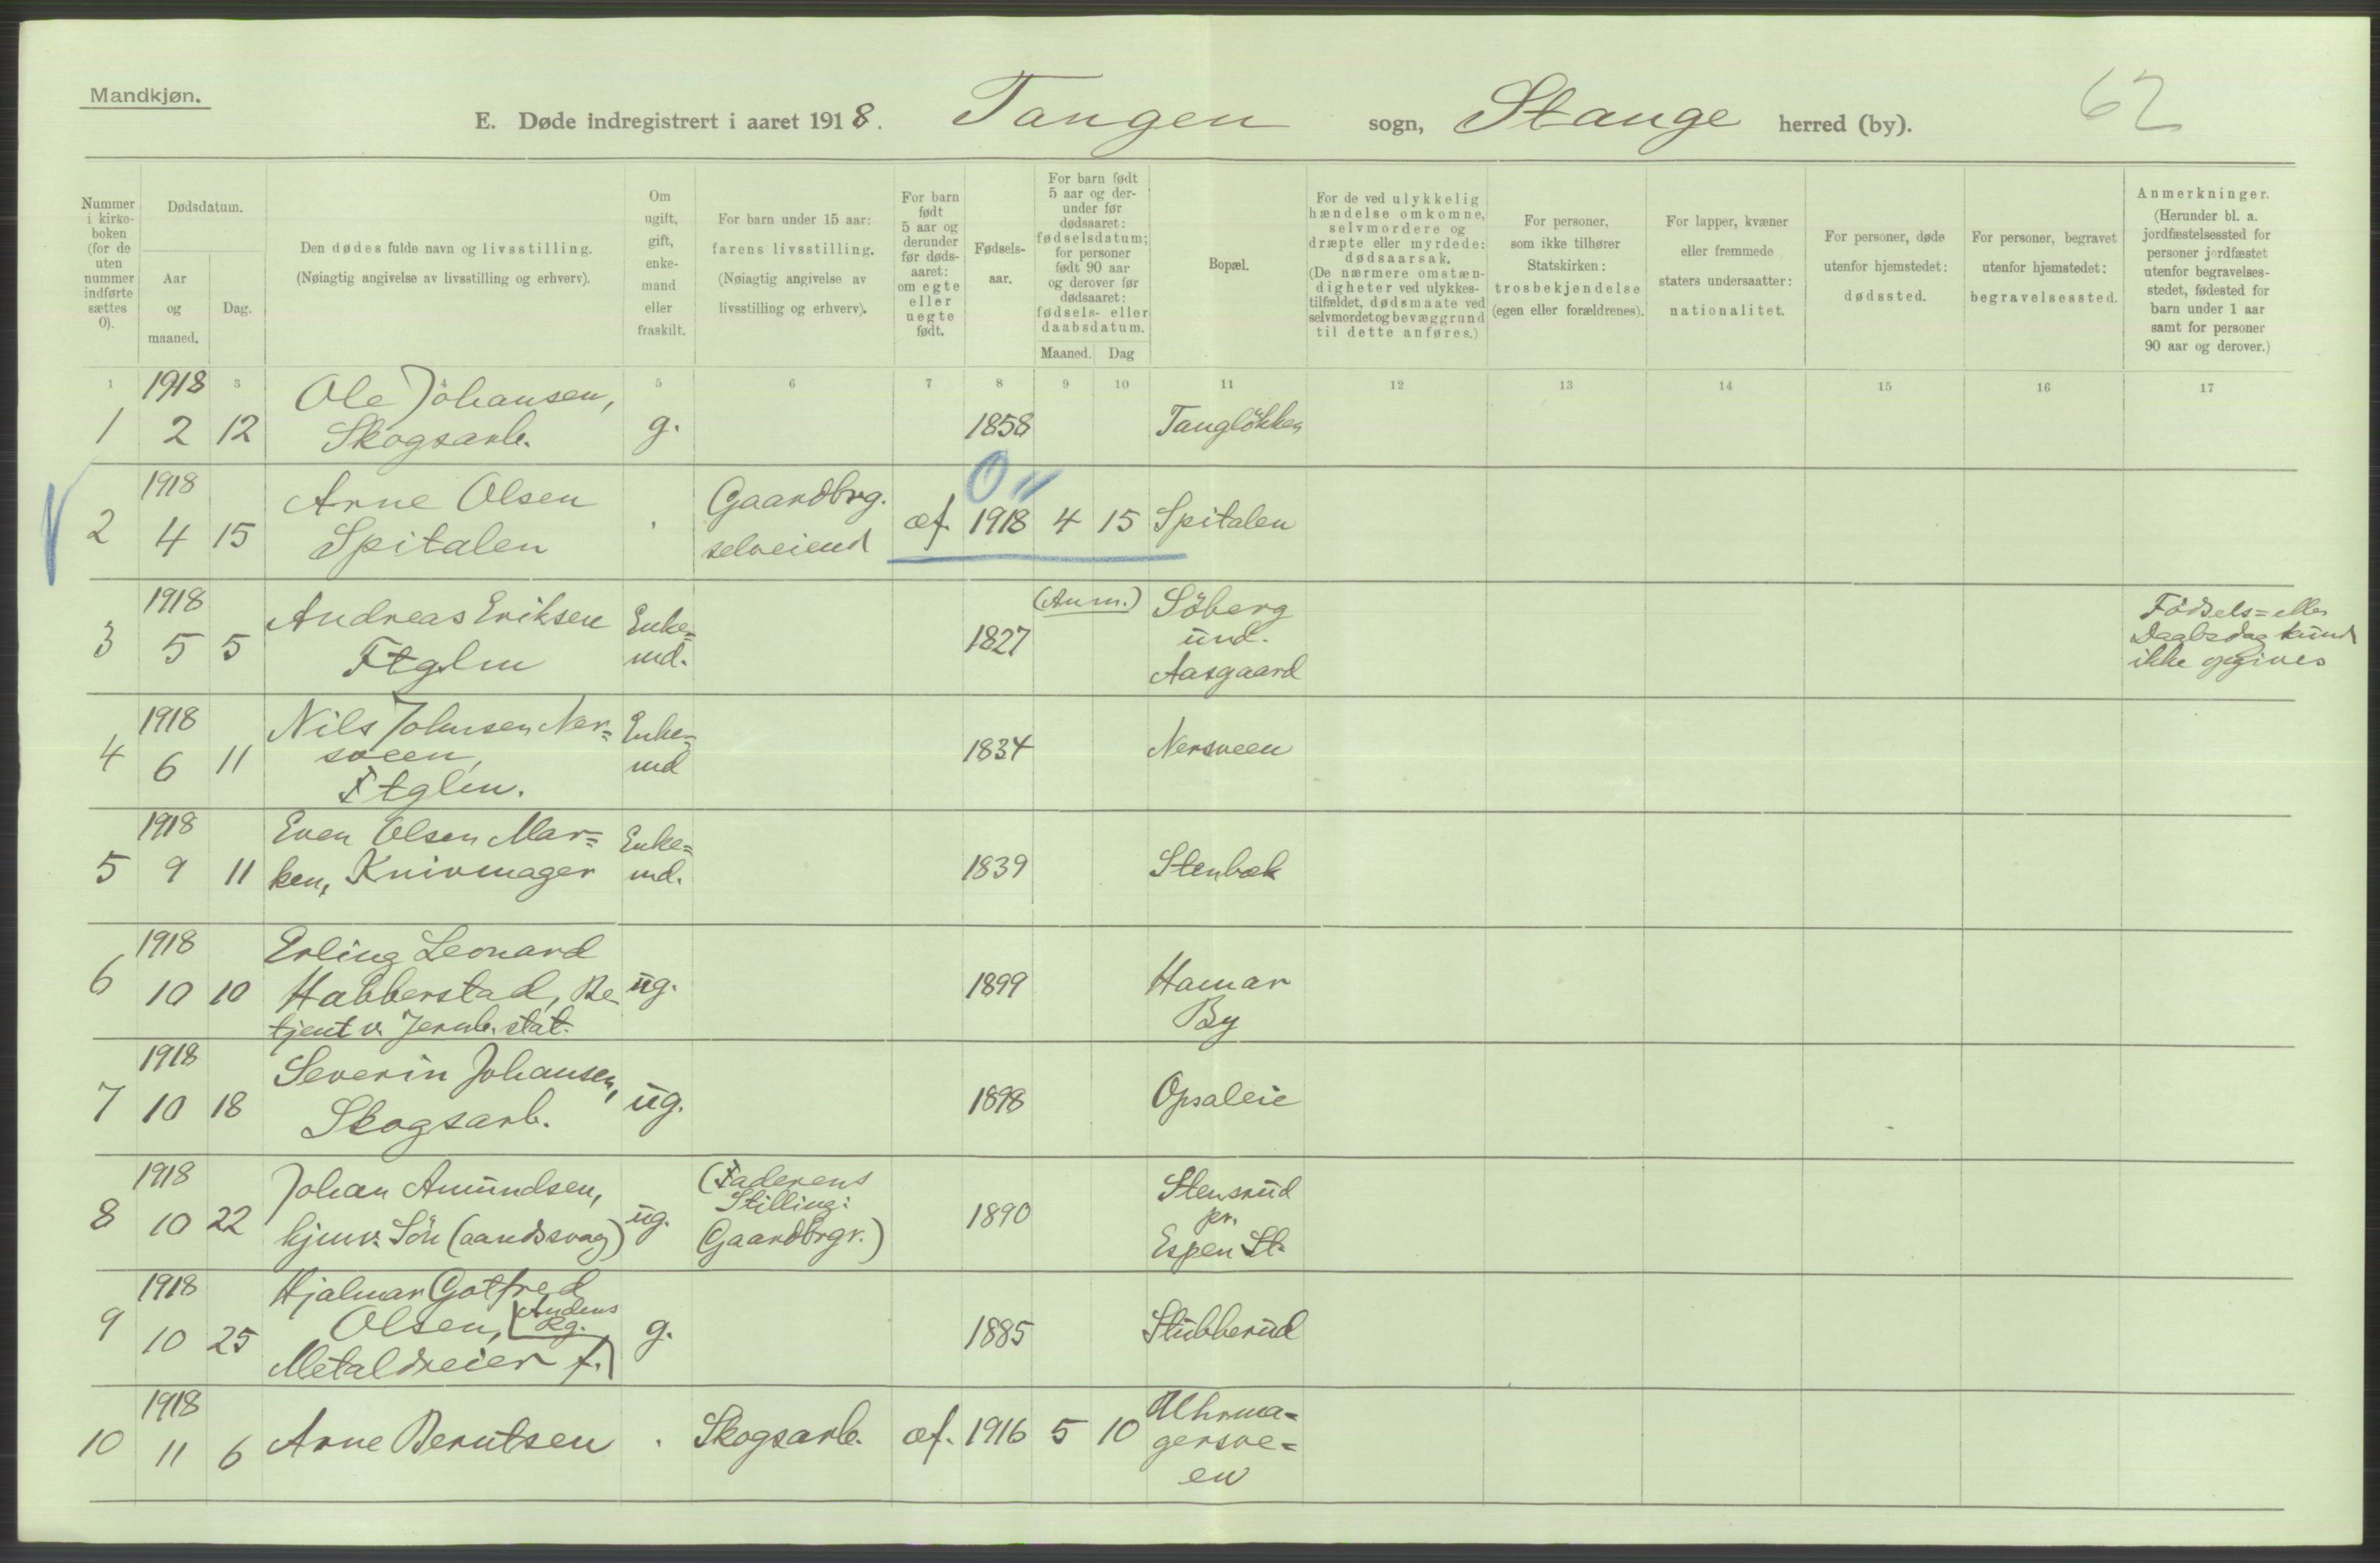 Mandkjøn.
E. Døde indregistrert i aaret 1918. Tangen sogn, Stange herred (by). 62
Nummer i kirke-boken (for de uten nummer indførte sættes 0).
Dødsdatum.
Aar og maaned.
Dag.
Den dødes fulde navn og livsstilling.
(Nøiagtig angivelse av livsstilling og erhverv).
Om ugift, gift, enke-mand eller fraskilt.
For barn under 15 aar: farens livsstilling. (Nøiagtig angivelse av livsstilling og erhverv).
For barn født 5 aar og derunder før døds-aaret: om egte eller uegte født.
Fødsels-aar.
For barn født 5 aar og der-under før dødsaaret: fødselsdatum; for personer født 90 aar og derover før dødsaaret: fødsels- eller daabsdatum.
Maaned. Dag
Bopæl.
For de ved ulykkelig hændelse omkomne, selvmordere og dræpte eller myrdede: dødsaarsak. (De nærmere omstæn-digheter ved ulykkes-tilfældet, dødsmaate ved selvmordet og bevæggrund til dette anføres.)
For personer, som ikke tilhører Statskirken: trosbekjendelse (egen eller forældrenes).
For lapper, kvæner eller fremmede staters undersaatter: nationalitet.
For personer, døde utenfor hjemstedet: dødssted.
For personer, begravet utenfor hjemstedet: begravelsessted.
Anmerkninger. (Herunder bl. a. jordfæstelsessted for personer jordfæstet utenfor begravelses-stedet, fødested for barn under 1 aar samt for personer 90 aar og derover.)
1 3 5 6 7 8 9 10 11 12 13 14 15 16 17
1918 Ole Johansen,
1 2 12 Skogsarb. g. 1858 Tangløkken
1918 Arne Olsen Gaardbrg.
2 4 15 Spitalen . selveiend æf. 1918 4 15 Spitalen
0
1918 Andreas Eriksen Enke= (Anm.) Söberg Födsels= eller
3 5 5 Ftglm md. 1827 und. Daabsdag kund
Aasgaard ikke opgives
1918 Nils Johnsen Ner= Enke=
4 6 11 sveen, md 1834 Nersveen
Ftglm.
1918 Even Olsen Mar= Enke=
5 9 11 ken, Knivmager md. 1839 Stenbæk
1918 Erling Leonard
6 10 10 Habberstad, Be ug. 1899 Hamar
tjent v. Jernb. stat. By
1918 Severin Johansen,
7 10 18 Skogsarb. ug. 1898 Opsaleie
1918 Johan Amundsen, (Faderens Stensrud
8 10 22 hjmv. Sön (aandssvag) ug. Stilling: 1890 pr.
Gaardbrgr.) Espen St.
1918 Hjalmar Gotfred
9 10 25 Olsen, (Andens Rg. g. 1885 Stubberud
Metaldreier f.)
1918 Uhrma=
10 11 6 Arne Berntsen . Skogsarb. æf. 1916 5 10 gersve=
en